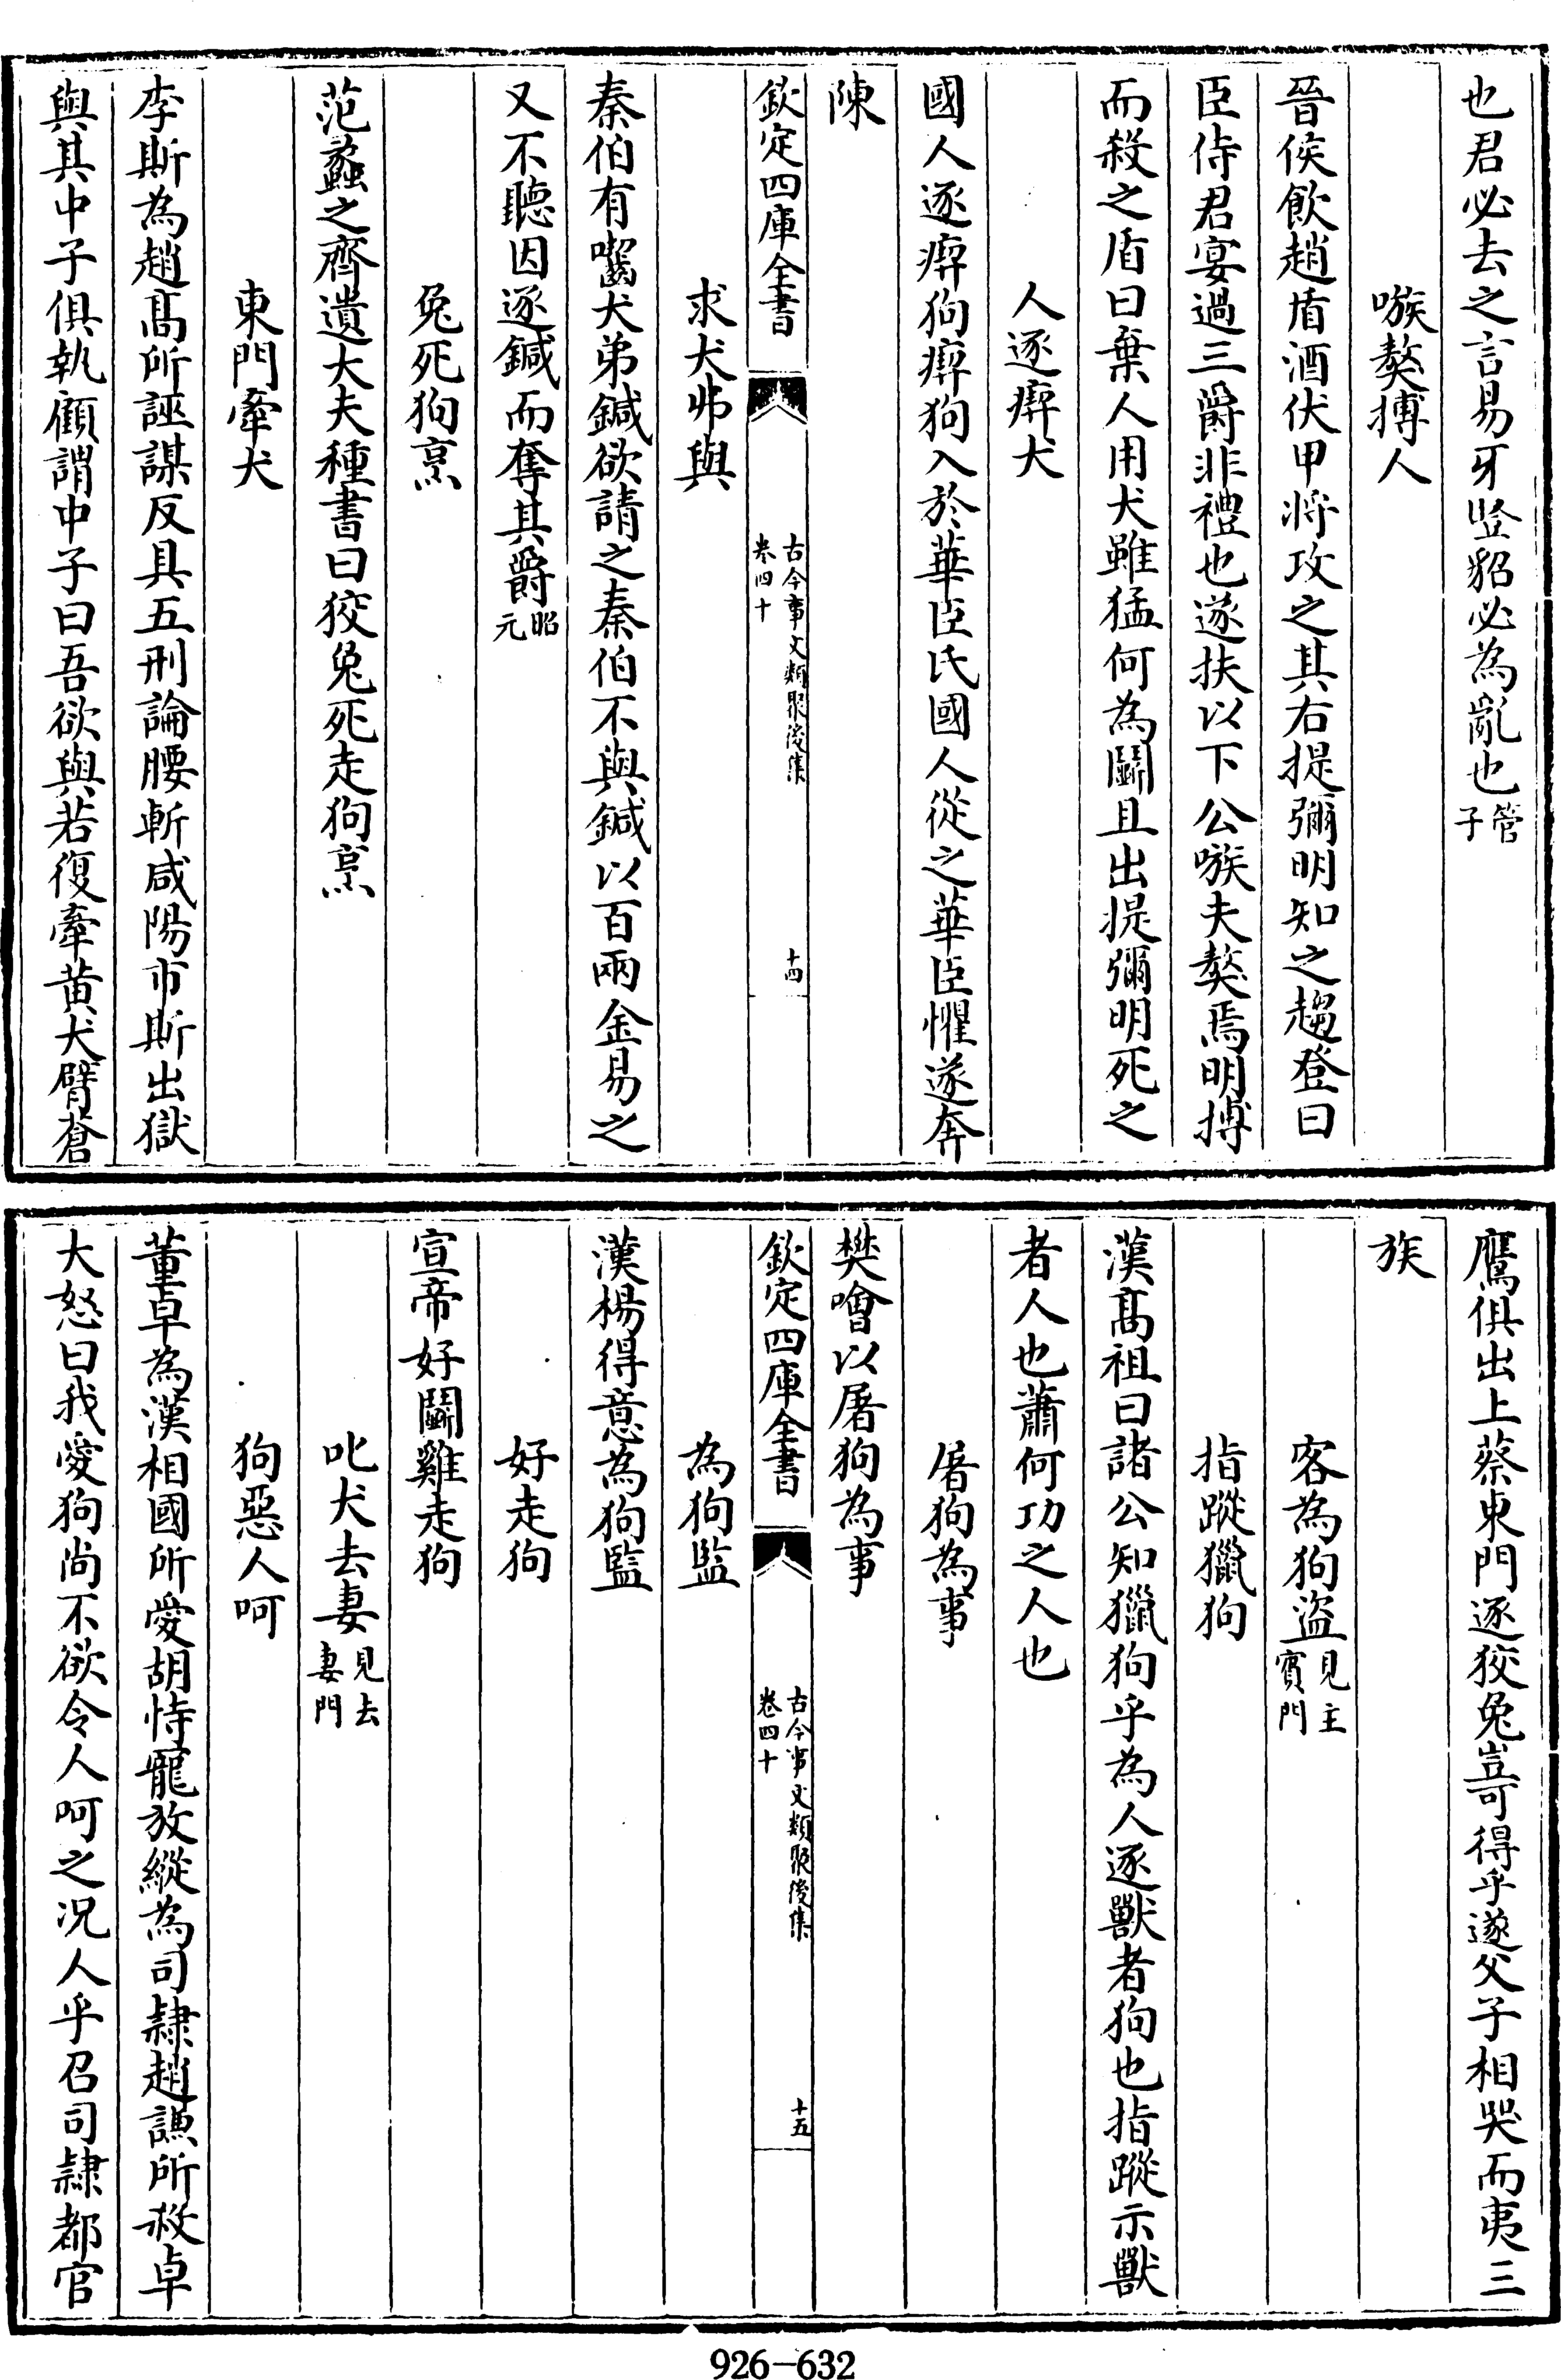 也君必去之言易牙豎貂必為亂也管子
嗾獒搏人
晉侯飲趙盾酒伏甲將攻之其右提彌明知之趨登曰
臣侍君宴過三爵非禮也遂扶以下公嗾夫獒焉明搏
而殺之盾曰棄人用犬雖猛何為鬭且出提彌明死之
人逐瘈犬
國人逐瘈狗瘈狗入於華臣氏國人從之華臣懼遂奔
陳
欽定四庫全書
古今事文類聚後集
卷四十
十四
求犬弗與
秦伯有囓犬弟鍼欲請之秦伯不與鍼以百兩金易之
又不聽因逐鍼而奪其爵昭元
兔死狗烹
范蠡之齊遺大夫種書曰狡兔死走狗烹
東門牽犬
李斯為趙髙所誣謀反具五刑論腰斬咸陽市斯出獄
與其中子俱執顧謂中子曰吾欲與若復牽黃犬臂蒼
鷹俱出上蔡東門逐狡兔豈可得乎遂父子相哭而夷三
族
客為狗盜見主賓門
指蹤獵狗
漢髙祖曰諸公知獵狗乎為人逐獸者狗也指蹤示獸
者人也蕭何功之人也
屠狗為事
樊噲以屠狗為事
欽定四庫全書
古今事文類聚後集
卷四十
十五
為狗監
漢楊得意為狗監
好走狗
宣帝好鬭雞走狗
叱犬去妻見去妻門
狗惡人呵
董卓為漢相國所愛胡恃寵放縱為司隸趙謙所殺卓
大怒曰我愛狗尚不欲令人呵之况人乎召司隸都官
926-632